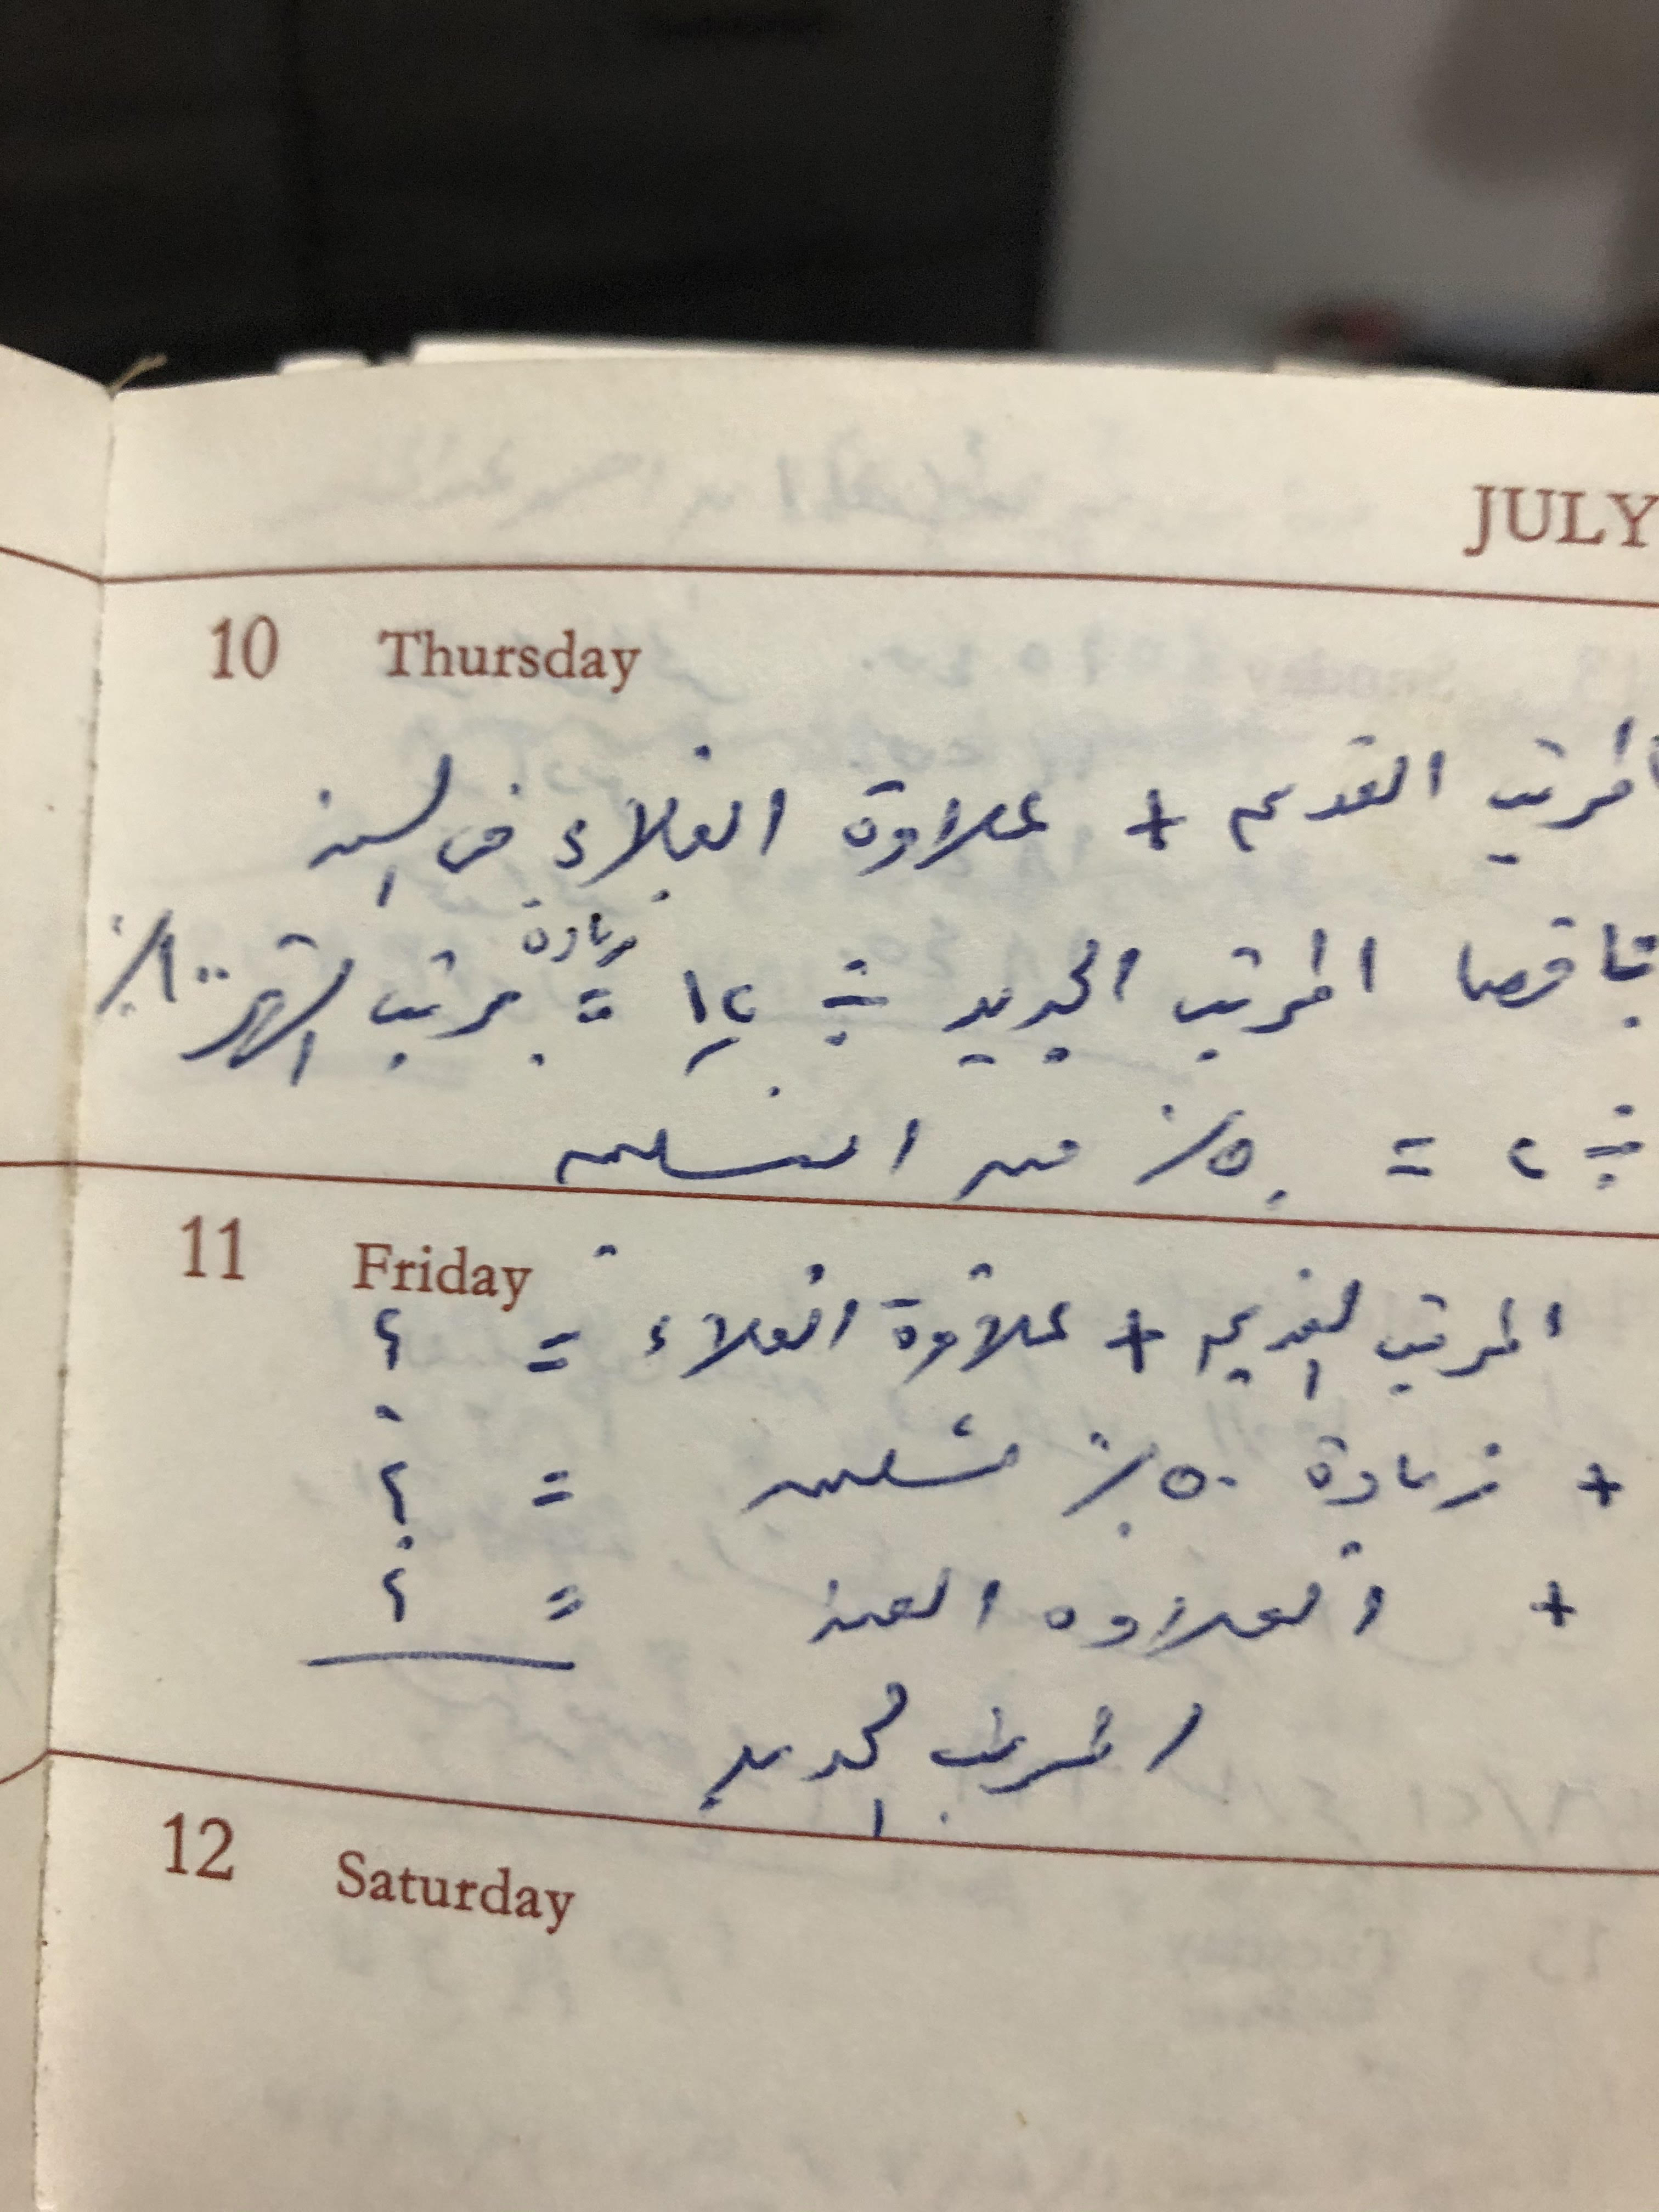 JULY
10 Thursday
المرتب القديم + علاوة الغلاء فى السنة
ناقصا المرتب الجديد ÷ ١٢ = زيادة مرتب الشهر ١٠٠٪
÷ ٢ = ٥٠٪ من
11 Friday
المرتب القديم + علاوة الغلاء = ؟
+ زيادة ٥٠٪ = ؟
+ العلاوه = ؟
المرتب الجديد
12 Saturday